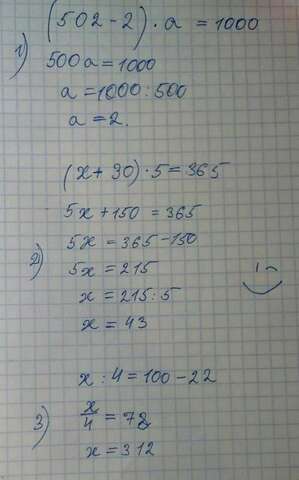 (502-2)·a = 1000
1) 500a=1000
a=1000:500
a=2.
(x+30)·5=365
5x+150=365
5x=365-150
2) 5x=215
x=215:5
x=43
x:4=100-22
3) x/4=78
x=312